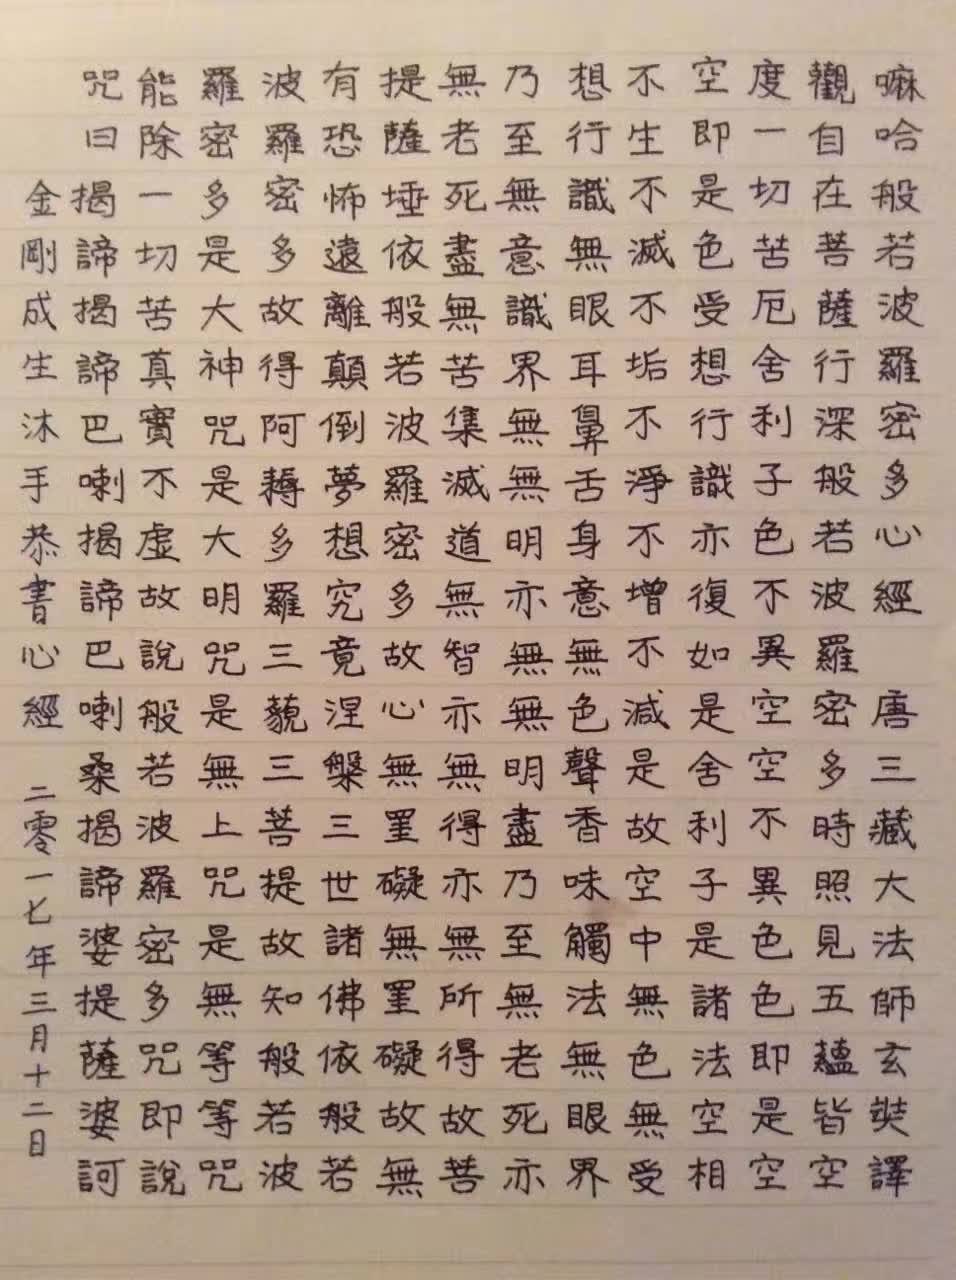 嘛哈般若波羅密多心經 唐三藏大法師玄奘譯
觀自在菩薩行深般若波羅密多時照見五蘊皆空
度一切苦厄舍利子色不異空空不異色色即是空
空即是色受想行識亦復如是舍利子是諸法空相
不生不滅不垢不淨不增不減是故空中無色無受
想行識無眼耳鼻舌身意無色聲香味觸法無眼界
乃至無意識界無無明亦無無明盡乃至無老死亦
無老死盡無苦集滅道無智亦無得亦無所得故菩
提薩埵依般若波羅密多故心無罣礙無罣礙故無
有恐怖遠離顛倒夢想究竟涅槃三世諸佛依般若
波羅密多故得阿耨多羅三藐三菩提故知般若波
羅密多是大神咒是大明咒是無上咒是無等等咒
能除一切苦真實不虛故說般若波羅密多咒即說
咒曰揭諦揭諦巴喇揭諦巴喇桑揭諦婆提薩婆訶
金剛成生沐手恭書心經 二零一七年三月十二日